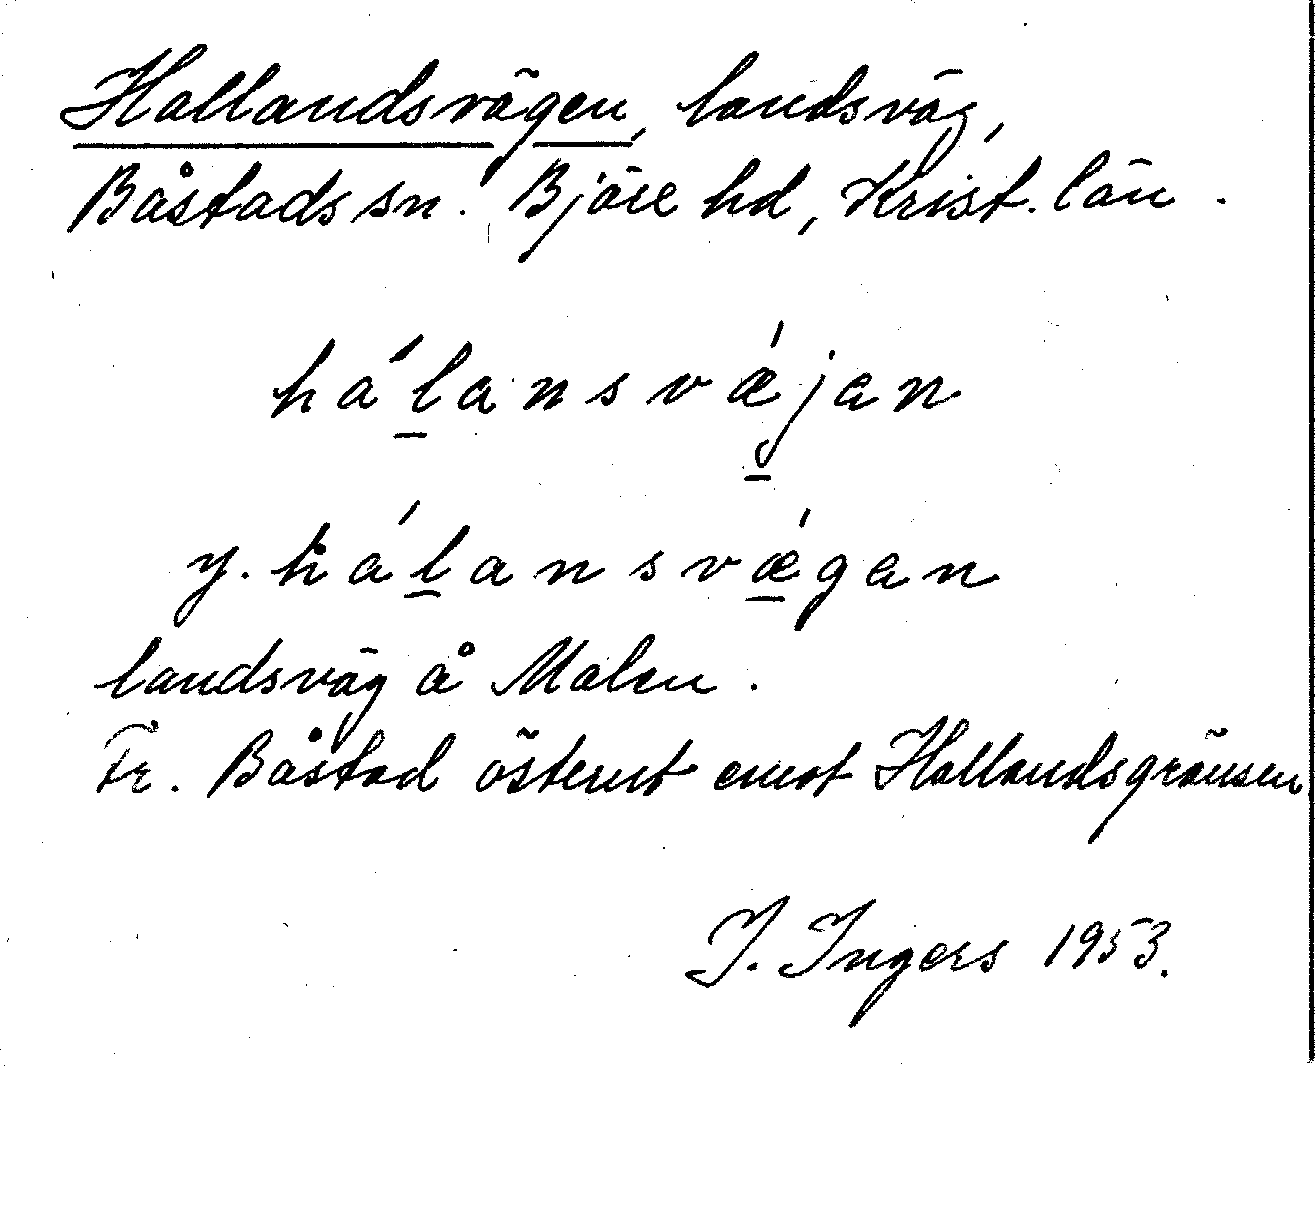 Hallandsvägen, landsväg,
Båstads sn. Bjäre hd, Krist. län.
hálansvǽjan
y. hálansvǽgan
landsväg å Malen.
Fr. Båstad österut emot Hallandsgränsen
I. Ingers 1953.